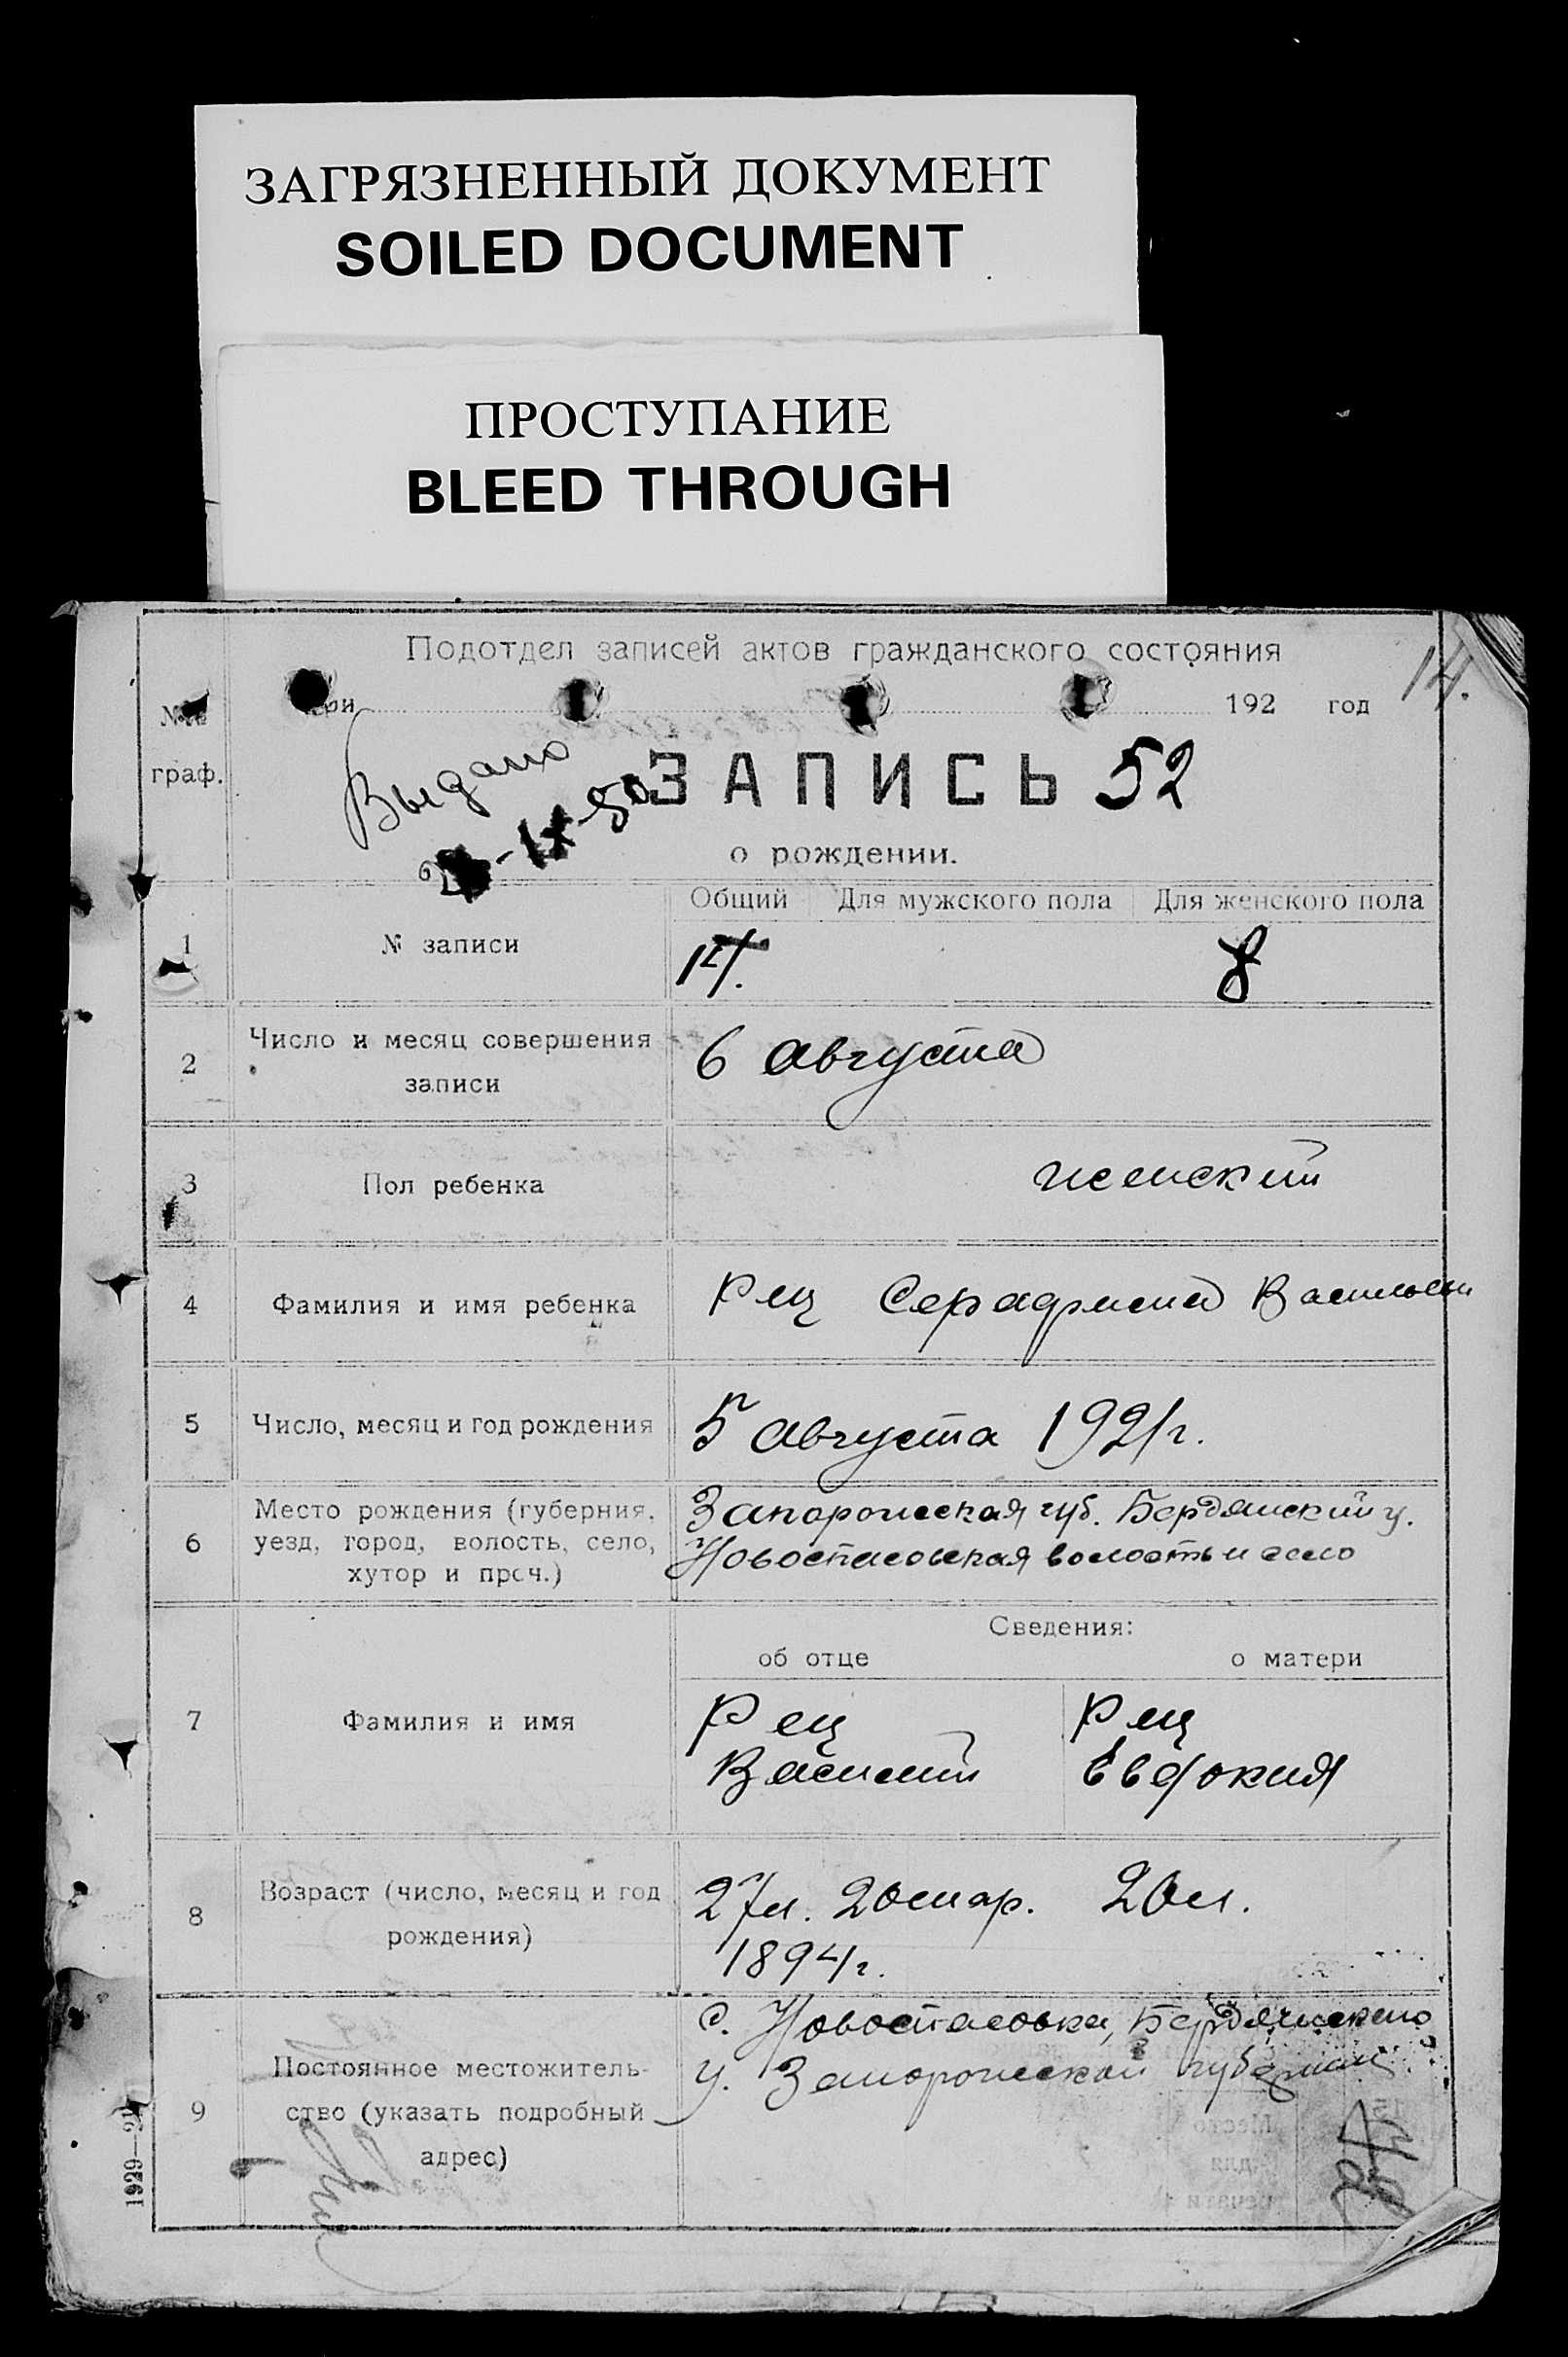 ЗАГРЯЗНЕННЫЙ ДОКУМЕНТ
SOILED DOCUMENT
ПРОСТУПАНИЕ
BLEED THROUGH
Подотдел записей актов гражданского состояния
14.
при 192 год
№№
граф.
Выдано
-IX-50
ЗАПИСЬ 52
о рождении.
Общий Для мужского пола Для женского пола
1 № записи 14. 8
2 Число и месяц совершения
записи
6 августа
3 Пол ребенка женский
4 Фамилия и имя ребенка Рец Серафима Васильевн
5 Число, месяц и год рождения 5 августа 1921г.
6 Место рождения (губерния,
уезд, город, волость, село,
хутор и проч.)
Запорожская губ. Бердянский у.
Новоспасовская волость и село
Сведения:
об отце о матери
7 Фамилия и имя
Рец Рец
Василий Евдокия
8 Возраст (число, месяц и год
рождения)
27л. 20 мар. 20л.
1894г.
9 Постоянное местожитель-
ство (указать подробный
адрес)
с. Новоспасовка, Бердянского
у. Запорожской губернии
1929—21